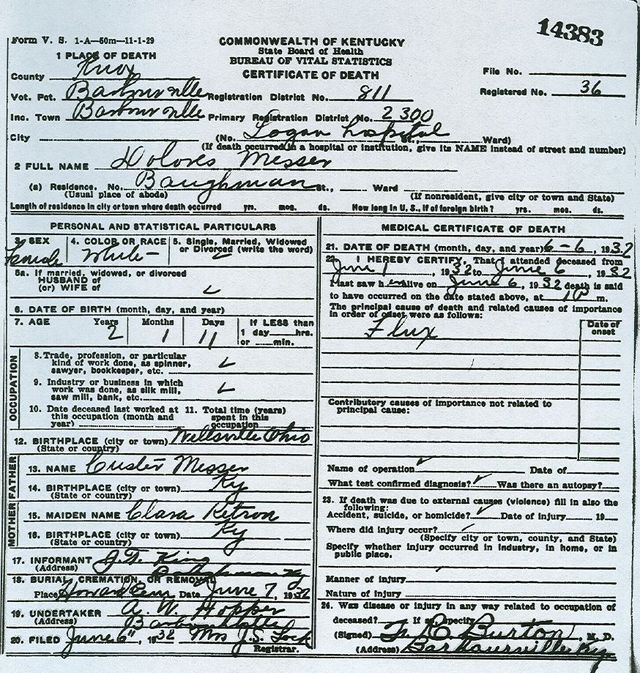 14383
Form V. S. 1-A—50m—11-1-29
COMMONWEALTH OF KENTUCKY
State Board of Health
BUREAU OF VITAL STATISTICS
CERTIFICATE OF DEATH
1 PLACE OF DEATH
County Knox
File No.
Vot. Pct. Barbourville Registration District No. 811
Registered No. 36
Inc. Town Barbourville Primary Registration District No. 2300
City (No. Logan Hospital Ward)
(If death occurred in a hospital or institution, give its NAME instead of street and number)
2 FULL NAME Dolores Messer
(a) Residence. No. Baughman St., Ward
(Usual place of abode) (If nonresident, give city or town and State)
Length of residence in city or town where death occurred yrs. mos. ds. How long in U. S., if of foreign birth? yrs. mos. ds.
PERSONAL AND STATISTICAL PARTICULARS
3. SEX Female
4. COLOR OR RACE White
5. Single, Married, Widowed or Divorced (write the word)
5a. If married, widowed, or divorced
HUSBAND of
(or) WIFE of
6. DATE OF BIRTH (month, day, and year)
7. AGE Years 2 Months 1 Days 11 If LESS than 1 day hrs. or min.
OCCUPATION
8. Trade, profession, or particular
kind of work done, as spinner,
sawyer, bookkeeper, etc.
9. Industry or business in which
work was done, as silk mill,
saw mill, bank, etc.
10. Date deceased last worked at this occupation (month and year)
11. Total time (years) spent in this occupation
12. BIRTHPLACE (city or town) Wellsville Ohio
(State or country)
FATHER
13. NAME Custer Messer
14. BIRTHPLACE (city or town) Ky
(State or country)
MOTHER
15. MAIDEN NAME Clara Ketron
16. BIRTHPLACE (city or town) Ky
(State or country)
17. INFORMANT J. W. King
(Address) Baughman Ky
18. BURIAL, CREMATION, OR REMOVAL
Place Howard Cem Date June 7, 1932
19. UNDERTAKER A. W. Hopper
(Address) Barbourville
20. FILED June 6", 1932 Mrs J. S. Lock
Registrar.
MEDICAL CERTIFICATE OF DEATH
21. DATE OF DEATH (month, day, and year) 6-6, 1932
22. I HEREBY CERTIFY, That I attended deceased from
June 1 1932 to June 6, 1932
I last saw h alive on June 6, 1932 death is said
to have occurred on the date stated above, at m.
The principal cause of death and related causes of importance
in order of onset were as follows:
Date of onset
Flux
Contributory causes of importance not related to
principal cause:
Name of operation Date of
What test confirmed diagnosis? Was there an autopsy?
23. If death was due to external causes (violence) fill in also the
following:
Accident, suicide, or homicide? Date of injury 19
Where did injury occur?
(Specify city or town, county, and State)
Specify whether injury occurred in industry, in home, or in
public place.
Manner of injury
Nature of injury
24. Was disease or injury in any way related to occupation of
deceased? If so, specify
(Signed) Burton, M. D.
(Address) Barbourville Ky.